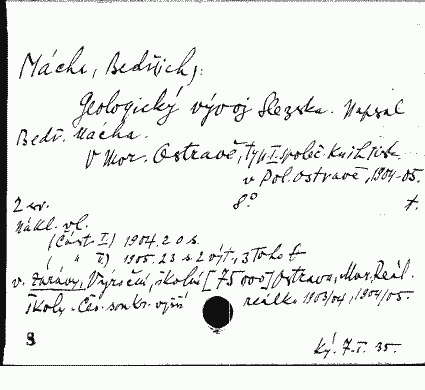 Mácha, Bedřich,:
Geologický vývoj Slezska. Napsal
Bedř. Mácha.
V Mor. Ostravě, I. společ. Knihtisk.
v Pol. Ostravě, 1904-05.
2 sv. 8° f.
Nákl. vl.
(Část I.) 1904. 20 s.
( " II.) 1905. 23 s. 2 výt., 3 f
v. Zprávy, Výroční, školní [75000] Ostrava, Mor. Reál.
školy. Čes. soukr. vyšší reálk. 1903/04, 1904/05.
8
Ký. 7.I. 35.